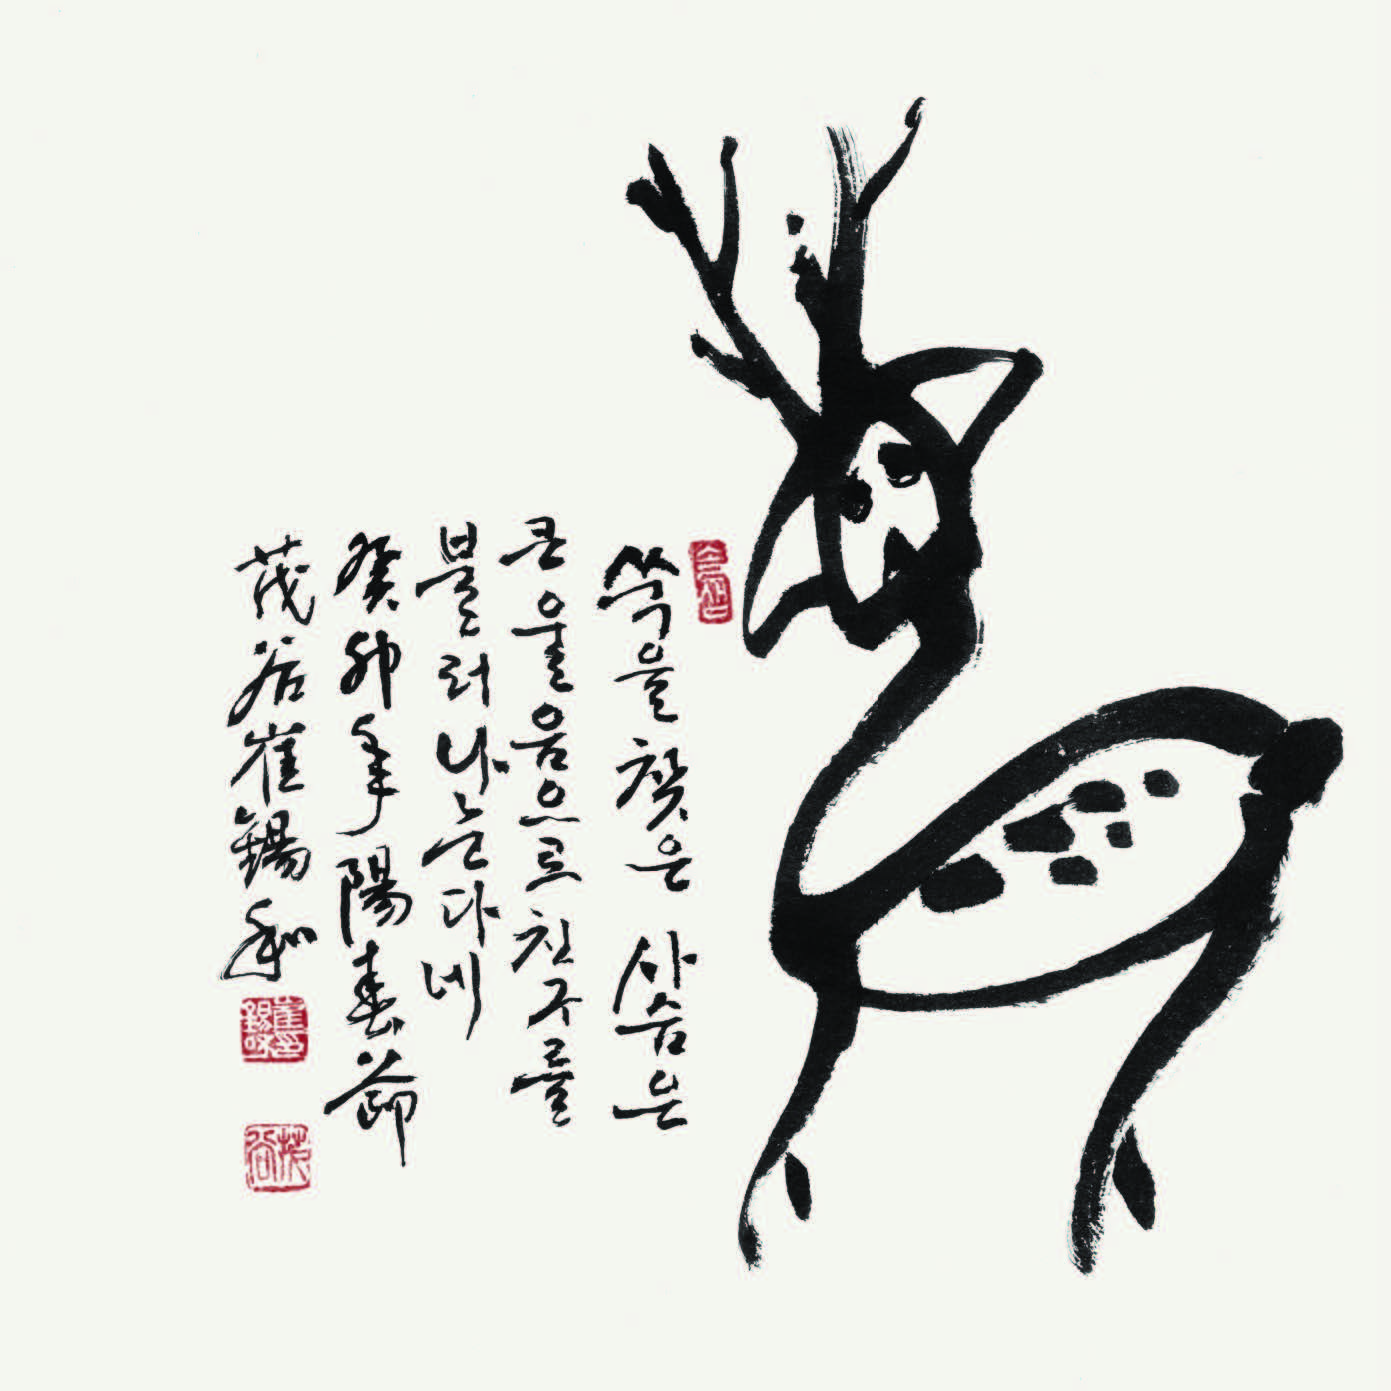 쑥을 찾은 사슴은
큰 울음으로 친구를
불러 나눈다네
癸卯年 陽春節
茂谷 崔錫和